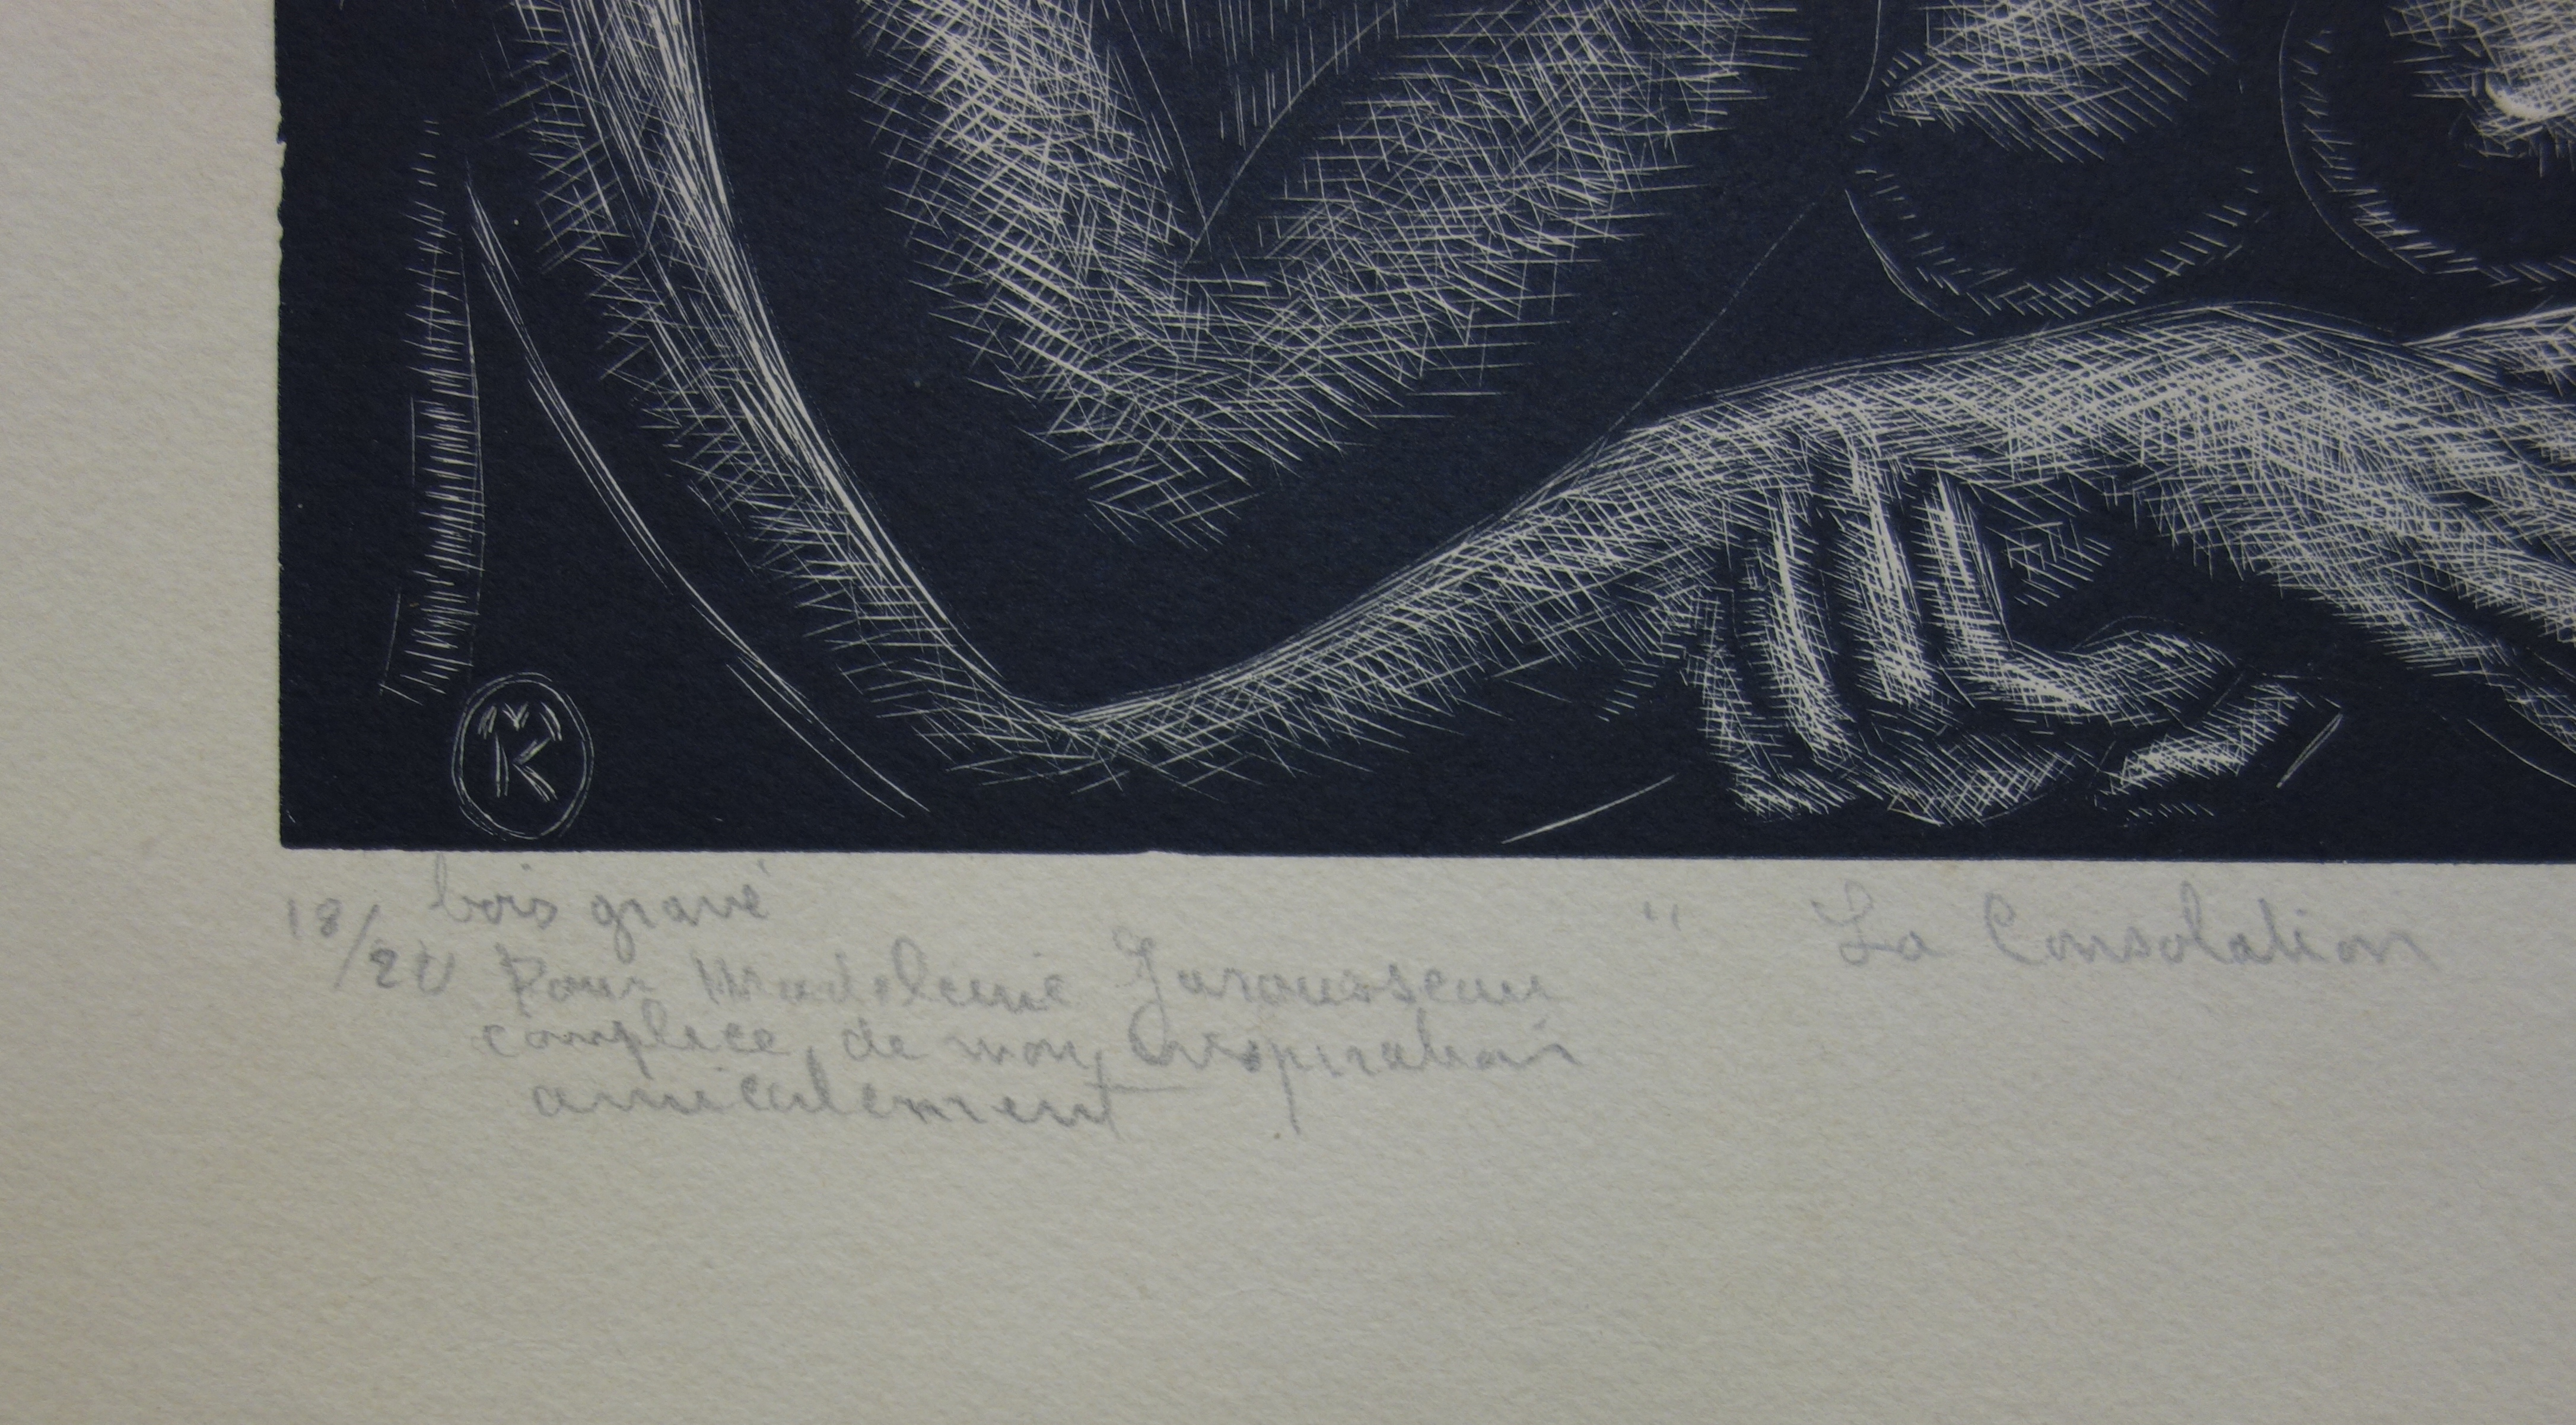 bois gravé
18/20 Pour Madeleine Jarousseau
complice, de mon inspiration
amicalement
" La Consolation
MK